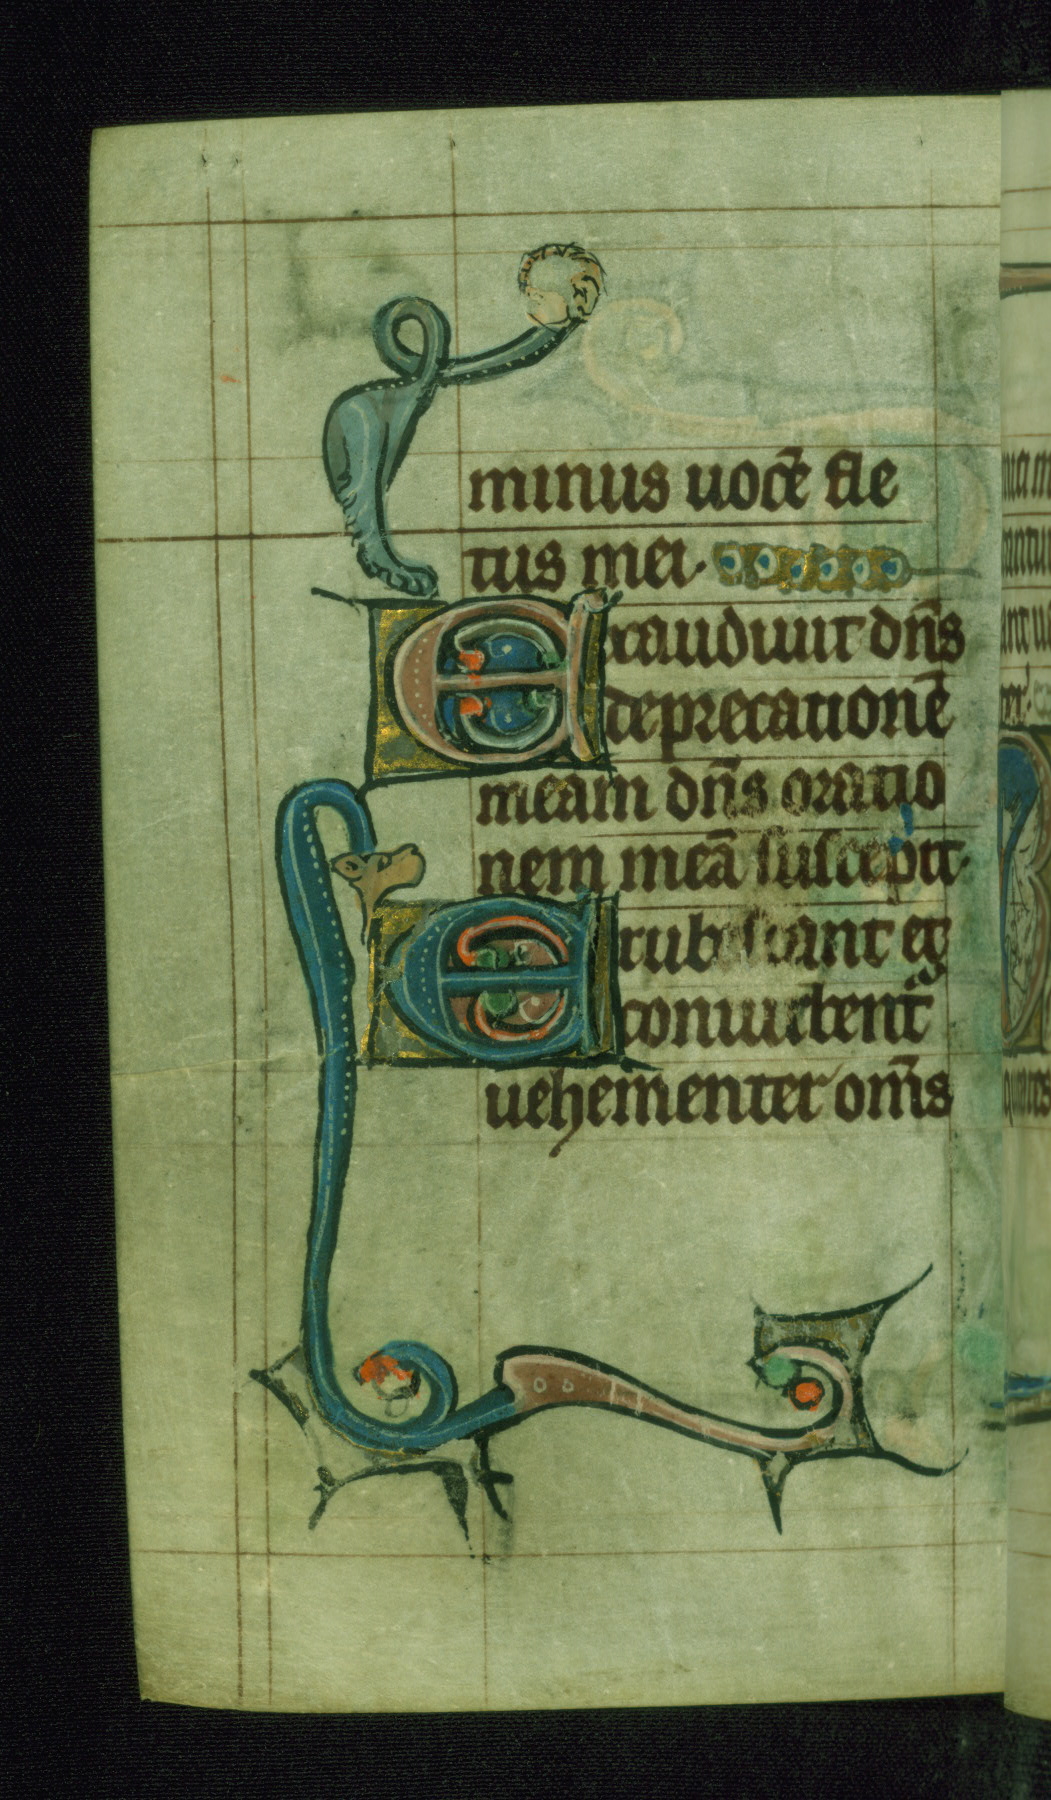 minus uocē fle
tus mei·
Exaudiuit dn̄s
deprecationē
meam dn̄s oratio
nem meā suscepit·
Erubescant et
conturbent᷑
uehementer om̄s